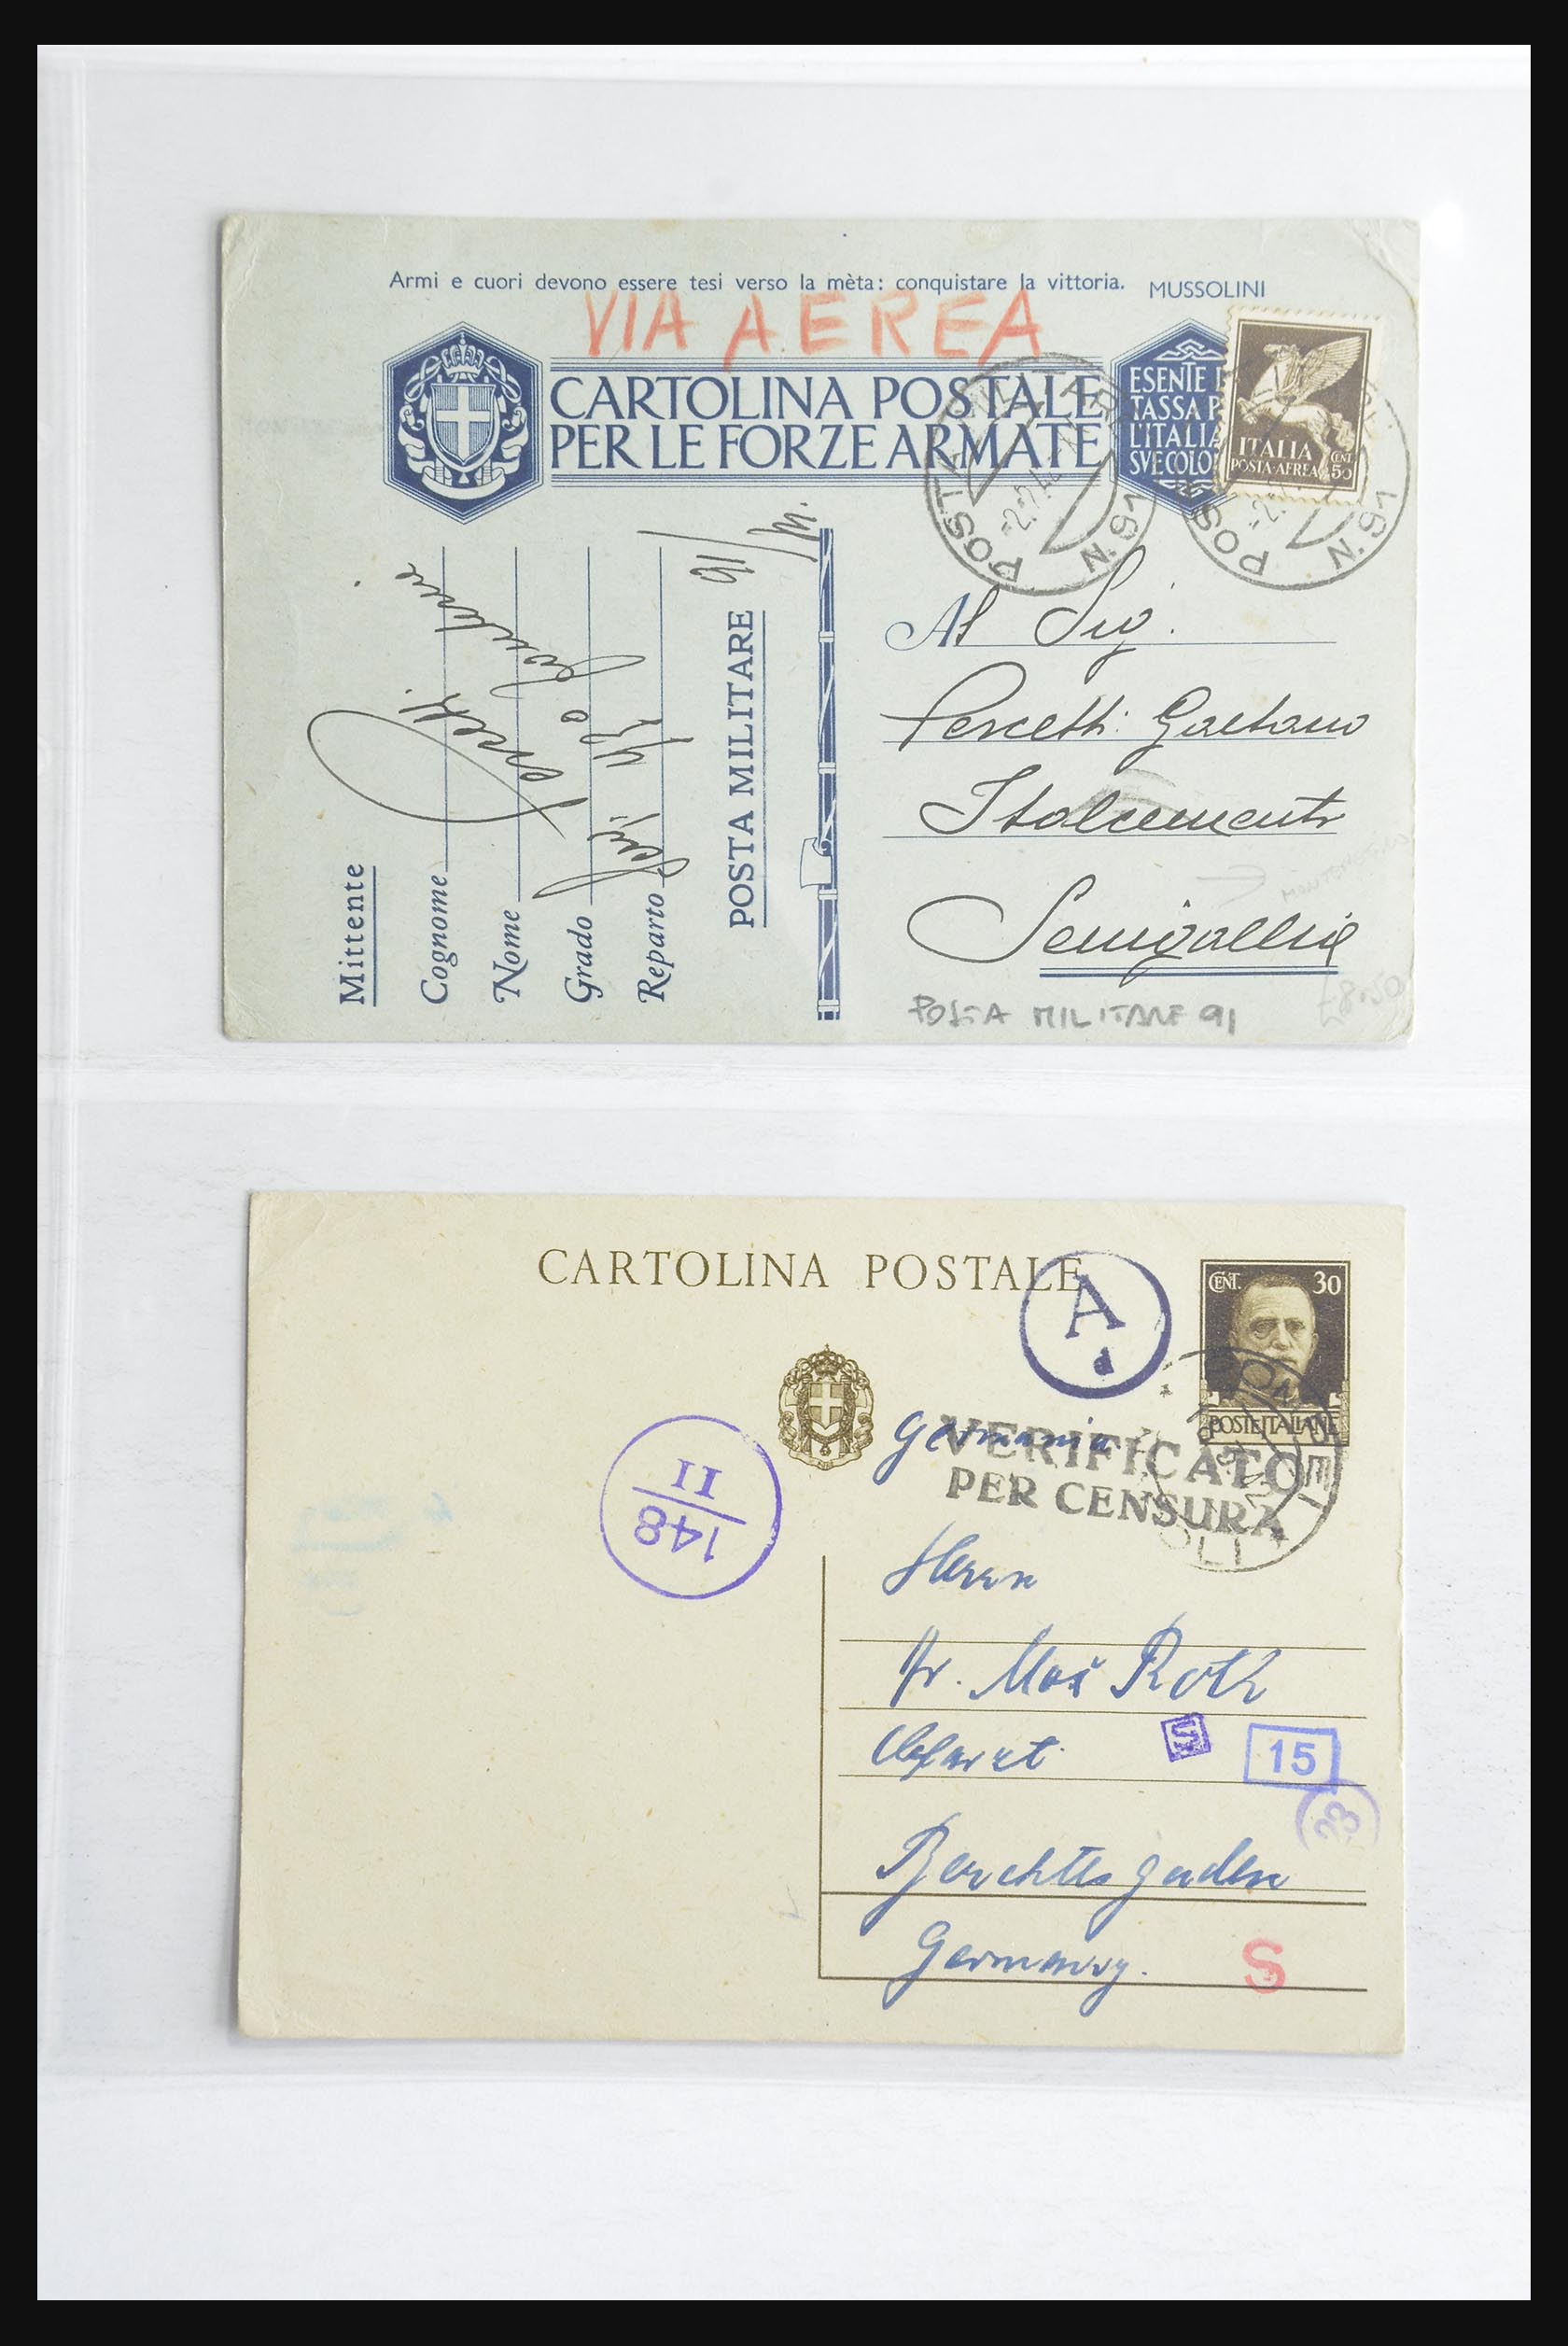 Armi e cuori devono essere tesi verso la mèta: conquistare la vittoria. MUSSOLINI
VIA AEREA
CARTOLINA POSTALE
PER LE FORZE ARMATE
ESENTE
TASSA P
L'ITALIA
SVE COLO
ITALIA
POSTA-AEREA
CENT. 50
POSTA MILITAR
N. 91
POS
N. 91
Mittente
Cognome
Nome
Grado
Reparto
POSTA MILITARE 91
Al Sig.
Gaetano
Italcementi
Senigallia
POSTA MILITARE 91
£8.50
CARTOLINA POSTALE
A
d
CENT. 30
POSTE ITALIANE
Germania
VERIFICATO
PER CENSURA
148
II
Herrn
Dr. Max Roth
15
33
Berchtesgaden
Germany.
S